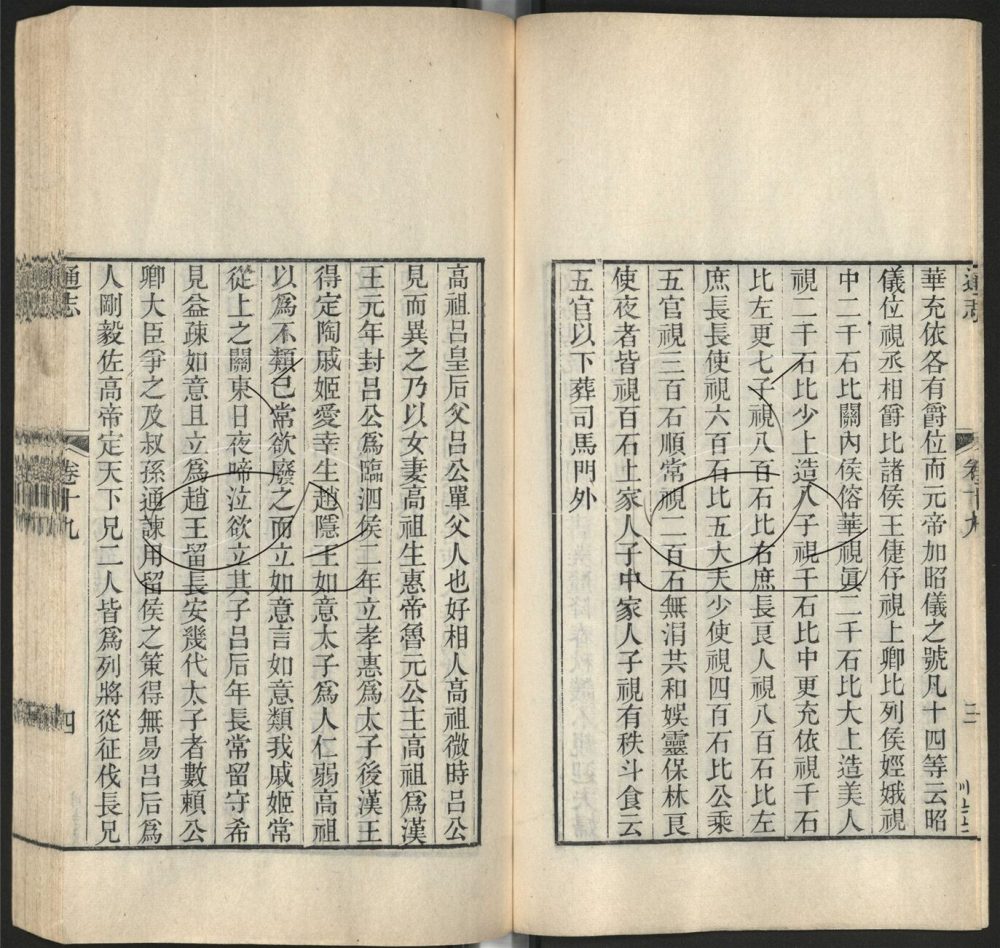 通志
卷十九
三
華充依各有爵位而元帝加昭儀之號凡十四等云昭
儀位視丞相爵比諸侯王倢伃視上卿比列侯娙娥視
中二千石比關內侯傛華視眞二千石比大上造美人
視二千石比少上造八子視千石比中更充依視千石
比左更七子視八百石比右庶長良人視八百石比左
庶長長使視六百石比五大夫少使視四百石比公乘
五官視三百石順常視二百石無涓共和娛靈保林良
使夜者皆視百石上家人子中家人子視有秩斗食云
五官以下葬司馬門外
高祖呂皇后父呂公單父人也好相人高祖微時呂公
見而異之乃以女妻高祖生惠帝魯元公主高祖爲漢
王元年封呂公爲臨泗侯二年立孝惠爲太子後漢王
得定陶戚姬愛幸生趙隱王如意太子爲人仁弱高祖
以爲不類已常欲廢之而立如意言如意類我戚姬常
從上之關東日夜啼泣欲立其子呂后年長常留守希
見益疎如意且立爲趙王留長安幾代太子者數賴公
卿大臣爭之及叔孫通諫用留侯之策得無易呂后爲
人剛毅佐高帝定天下兄二人皆爲列將從征伐長兄
通志
卷十九
四